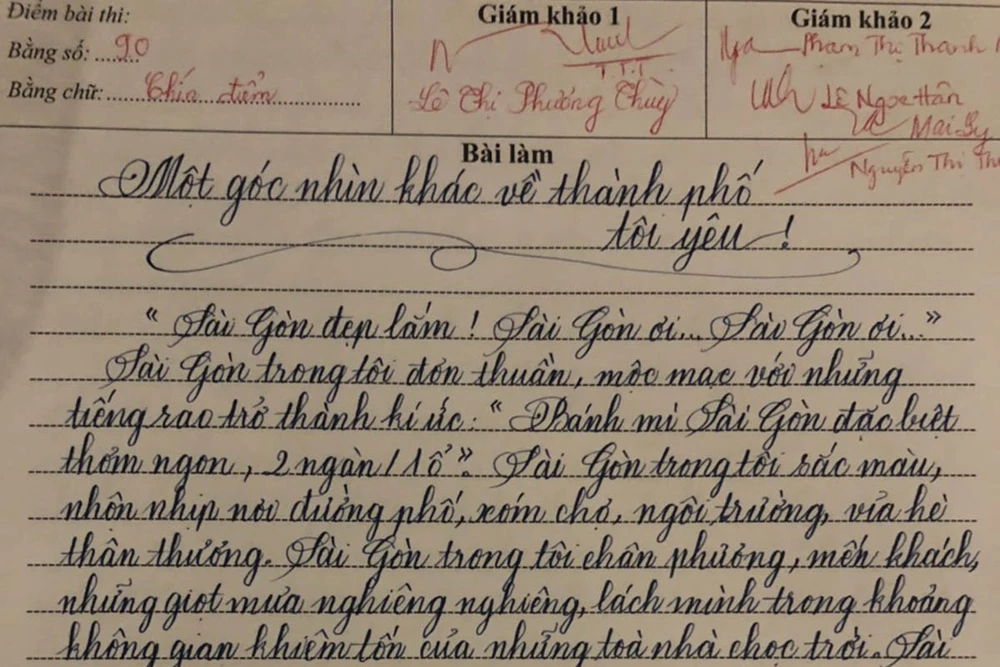 Điểm bài thi:
Bằng số: 90
Bằng chữ: Chín điểm
Giám khảo 1
T.T.T
Lê Thị Phương Thùy
Giám khảo 2
Nga Phạm Thị Thanh
Lê Ngọc Hân
Mai Ly
Nguyễn Thị
Bài làm
Một góc nhìn khác về thành phố
tôi yêu!
“Sài Gòn đẹp lắm! Sài Gòn ơi... Sài Gòn ơi...”
Sài Gòn trong tôi đơn thuần, mộc mạc với những
tiếng rao trở thành kí ức: “Bánh mì Sài Gòn đặc biệt
thơm ngon, 2 ngàn/1 ổ”. Sài Gòn trong tôi sắc màu,
nhộn nhịp nơi đường phố, xóm chợ, ngôi trường, vỉa hè
thân thương. Sài Gòn trong tôi chân phương, mến khách,
những giọt mưa nghiêng nghiêng, lách mình trong khoảng
không gian khiêm tốn của những toà nhà chọc trời. Sài